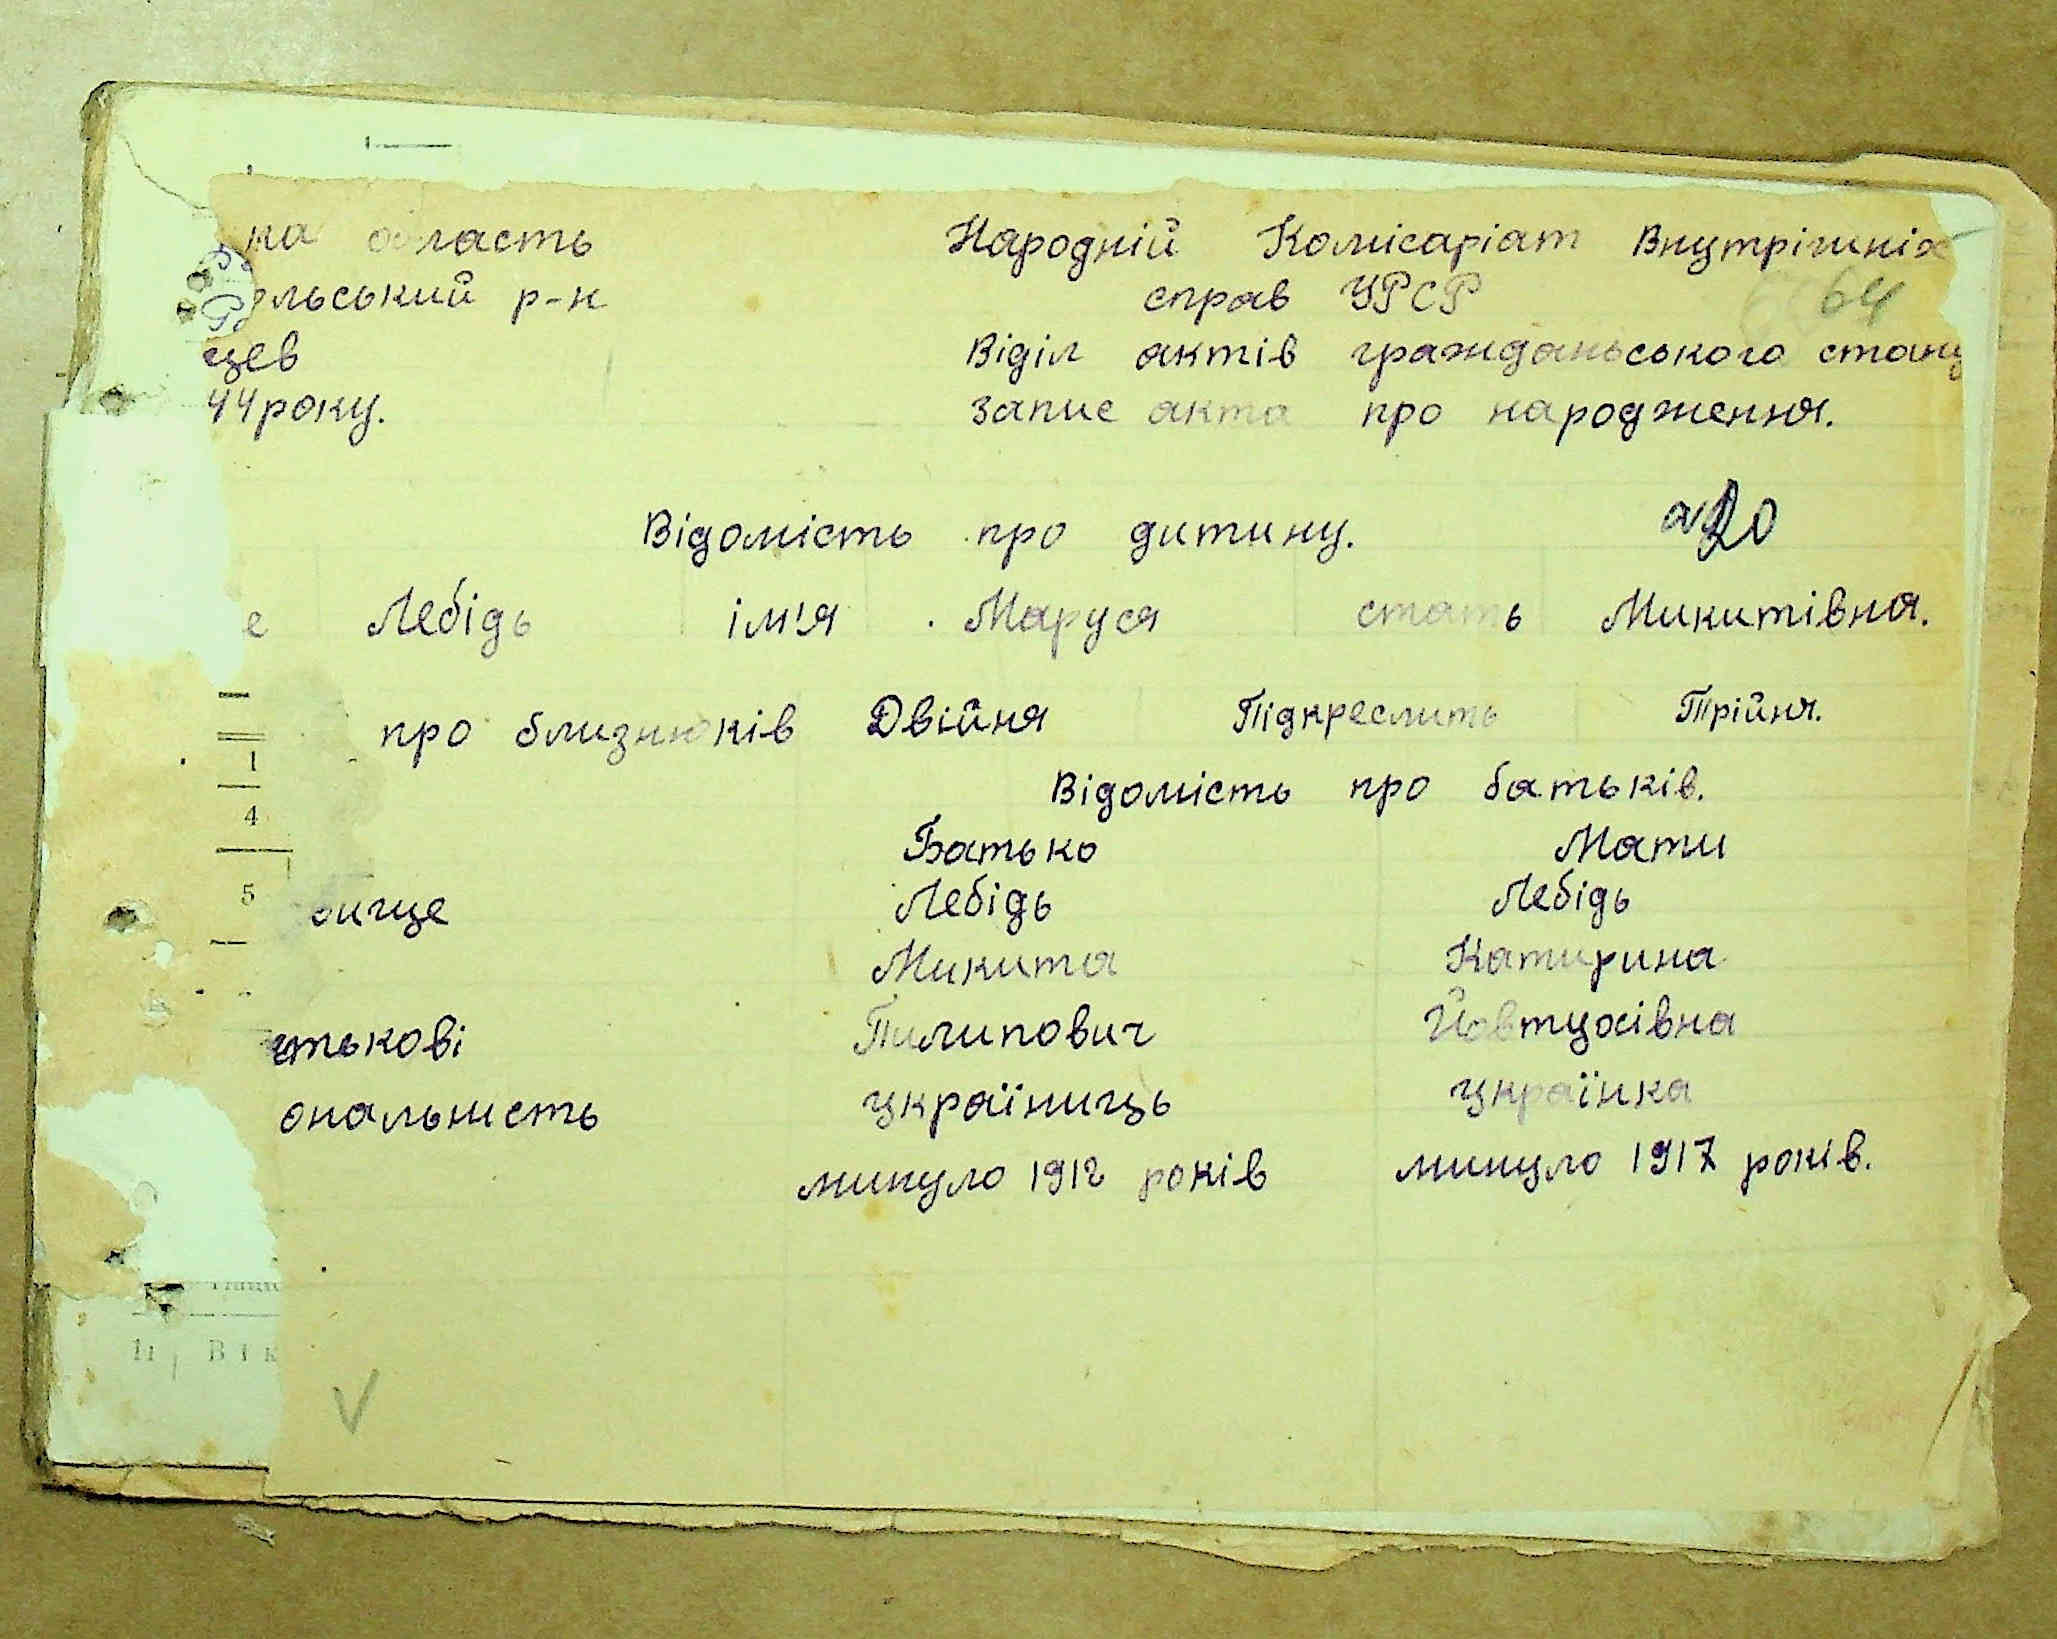 ка область Народній Комісаріат Внутрішніх
ольський р-н справ УРСР 64
цев Віділ актів гражданьського стану
44 року. Запис акта про народження.
Відомість про дитину. 20
е Лебідь ім'я Маруся стать Микитівна.
про близнюків Двійня Підкреслить Трійня.
1
Відомість про батьків.
4
Батько Мати
5
вище Лебідь Лебідь
Микита Катирина
атькові Пилипович Йовтухівна
ональність україниць українка
минуло 1912 років минуло 1917 років.
11 Вік